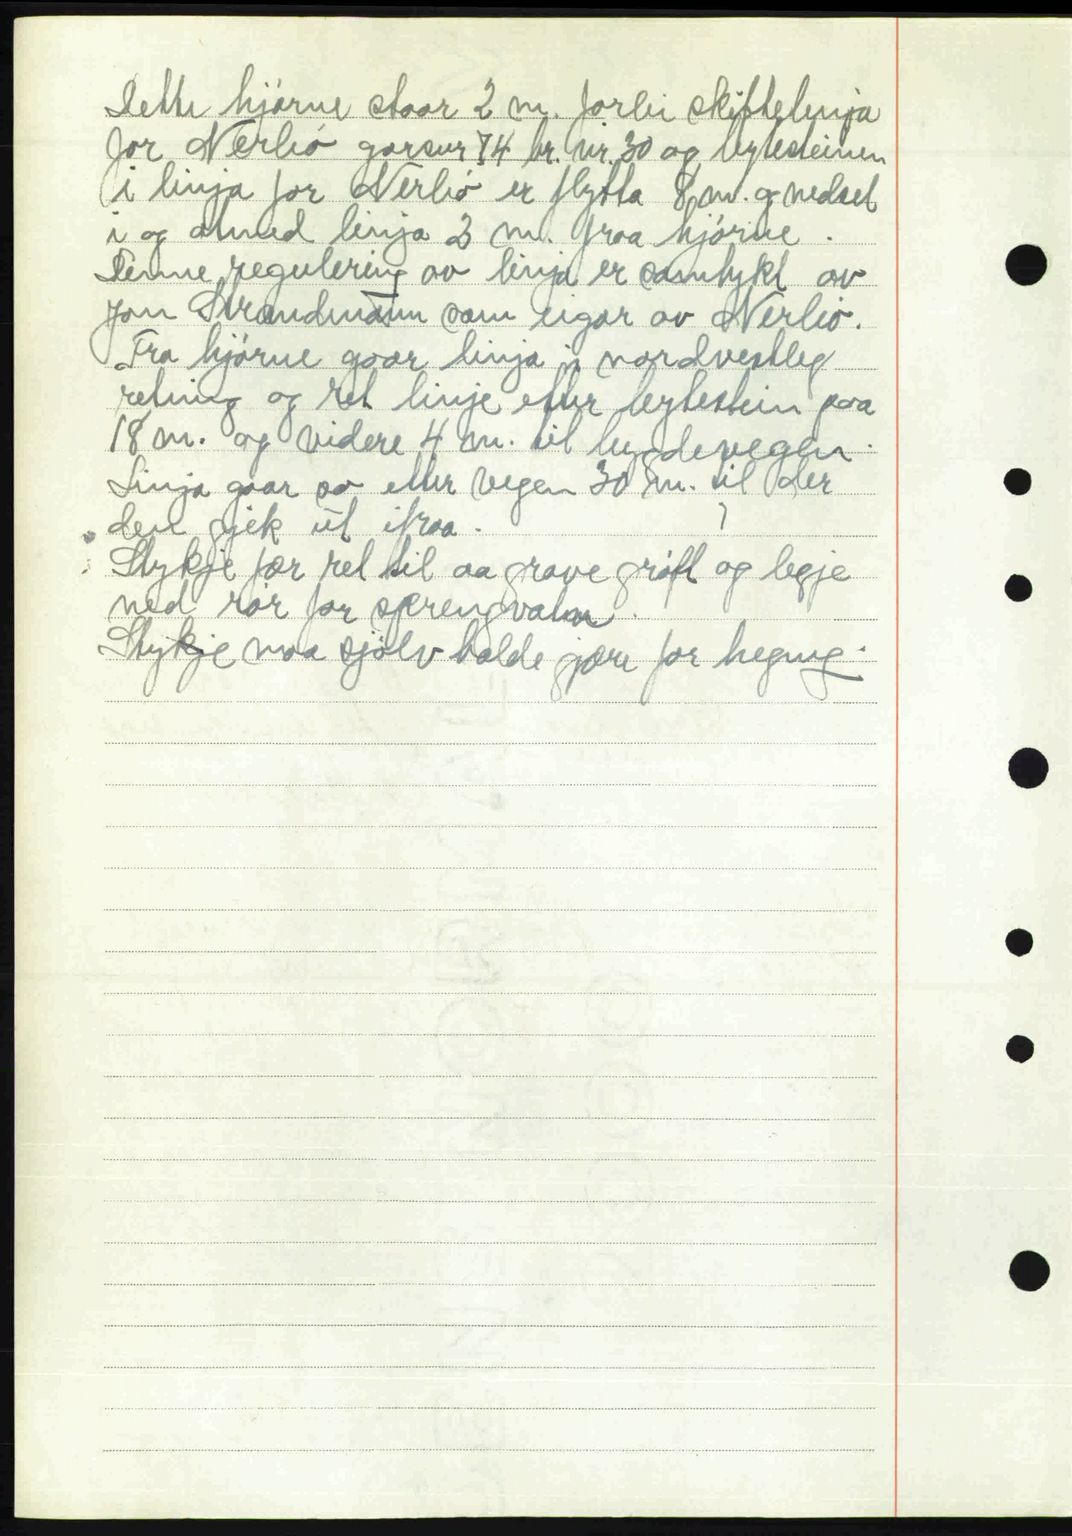 Dette hjørne staar 2 m. forbi skiftelinja
for Nerliø garsnr 74 br. nr. 30 og bytesteinen
i linja for Nerliø er flytta 8 m. og nedset
i og atmed linja 2 m. fraa hjørne.
Denne regulering av linja er samtykt av
Jon Strandmann som eigar av Nerliø.
Fra hjørne gaar linja i nordvestleg
retning og ret linje etter bytestein paa
18 m. og videre 4 m. til bygdevegen.
Linja gaar so etter vegen 30 m. til der
den gjek ut ifraa.
Stykje fær ret til aa grave grøft og legje
ned rør for sprengvatn.
Stykje maa sjølv halde gjære for hegning.